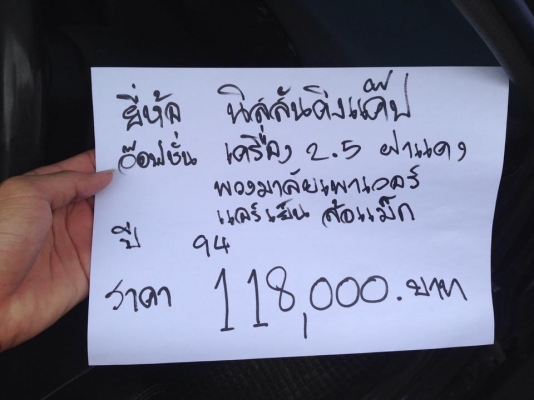 ยี่ห้อ นิสสันคิงแค็ป
อ๊อฟชั่น เครื่อง 2.5 ฝาแดง
พวงมาลัยเพาเวอร์
แอร์เย็น ล้อแม็ก
ปี 94
ราคา 118,000.บาท